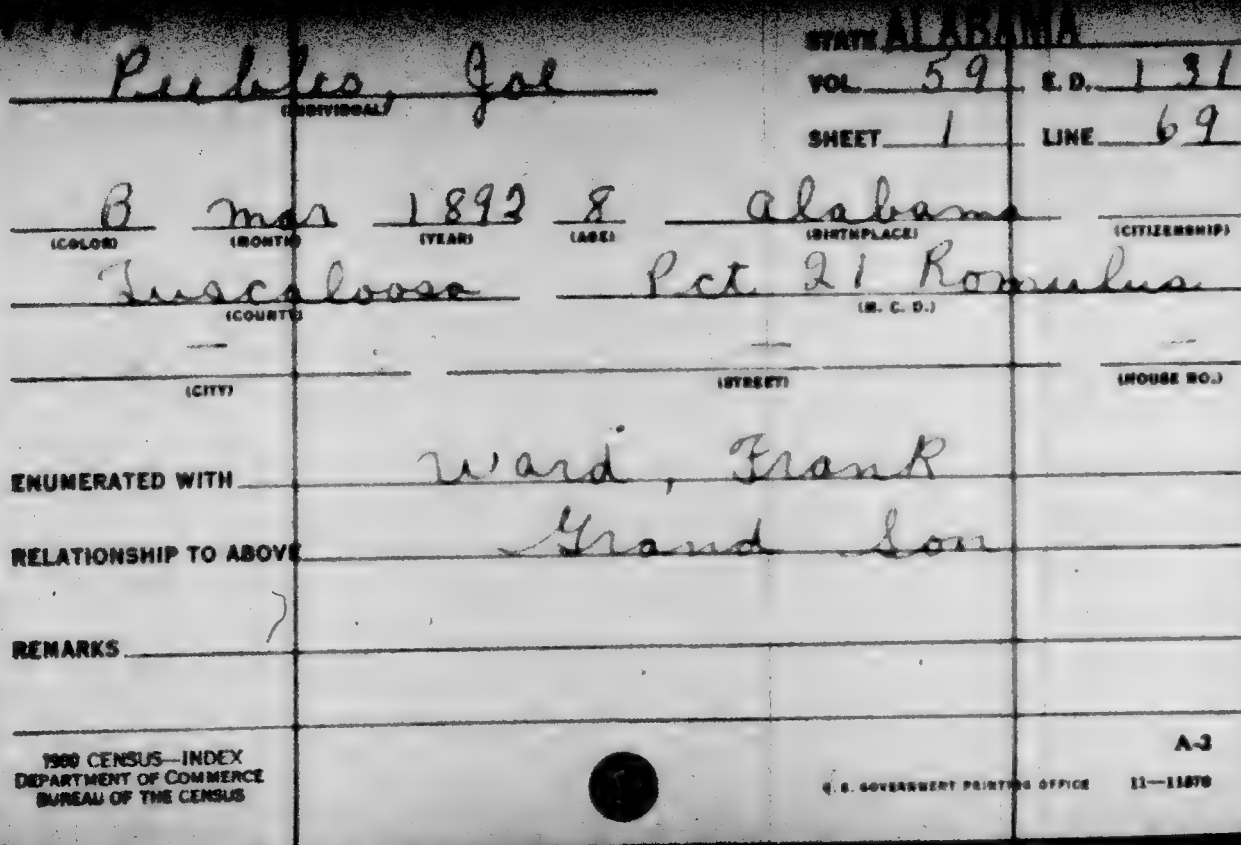 STATE ALABAMA
Peebles, Joe
(INDIVIDUAL)
VOL. 59 E. D. 131
SHEET 1 LINE 69
B Mar 1892 8 Alabama
(COLOR) (MONTH) (YEAR) (AGE) (BIRTHPLACE) (CITIZENSHIP)
Tuscaloosa Pct 21 Romulus
(COUNTY) (M. C. D.)
— — —
(CITY) (STREET) (HOUSE NO.)
ENUMERATED WITH Ward, Frank
RELATIONSHIP TO ABOVE Grand Son
REMARKS
1900 CENSUS—INDEX
DEPARTMENT OF COMMERCE
BUREAU OF THE CENSUS
A-2
U. S. GOVERNMENT PRINTING OFFICE 11—11870